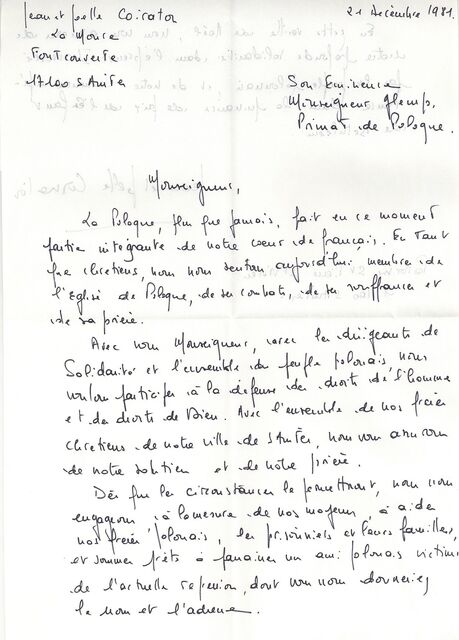 Jean et [?]elle Coirator
La Morce
Fontcouverte
17100 SAINTES
21 décembre 1981.
Son Eminence
Monseigneur Glemp,
Primat de Pologne.
Monseigneur,
La Pologne, plus que jamais, fait en ce moment
partie intégrante de notre cœur de français. En tant
que chrétiens, nous nous sentons aujourd'hui membre de
l'Eglise de Pologne, de ses combats, de ses souffrances et
de sa prière.
Avec vous Monseigneur, avec les dirigeants de
Solidarité et l'ensemble du peuple polonais nous
voulons participer à la défense des droits de l'homme
et des droits de Dieu. Avec l'ensemble de nos frères
chrétiens de notre ville de SAINTES, nous vous assurons
de notre soutien et de notre prière.
Dès que les circonstances le permettront, nous nous
engageons à la mesure de nos moyens, à aider
nos frères polonais, les prisonniers et leurs familles,
et sommes prêts à parrainer un ami polonais victime
de l'actuelle répression, dont vous nous donneriez
le nom et l'adresse.